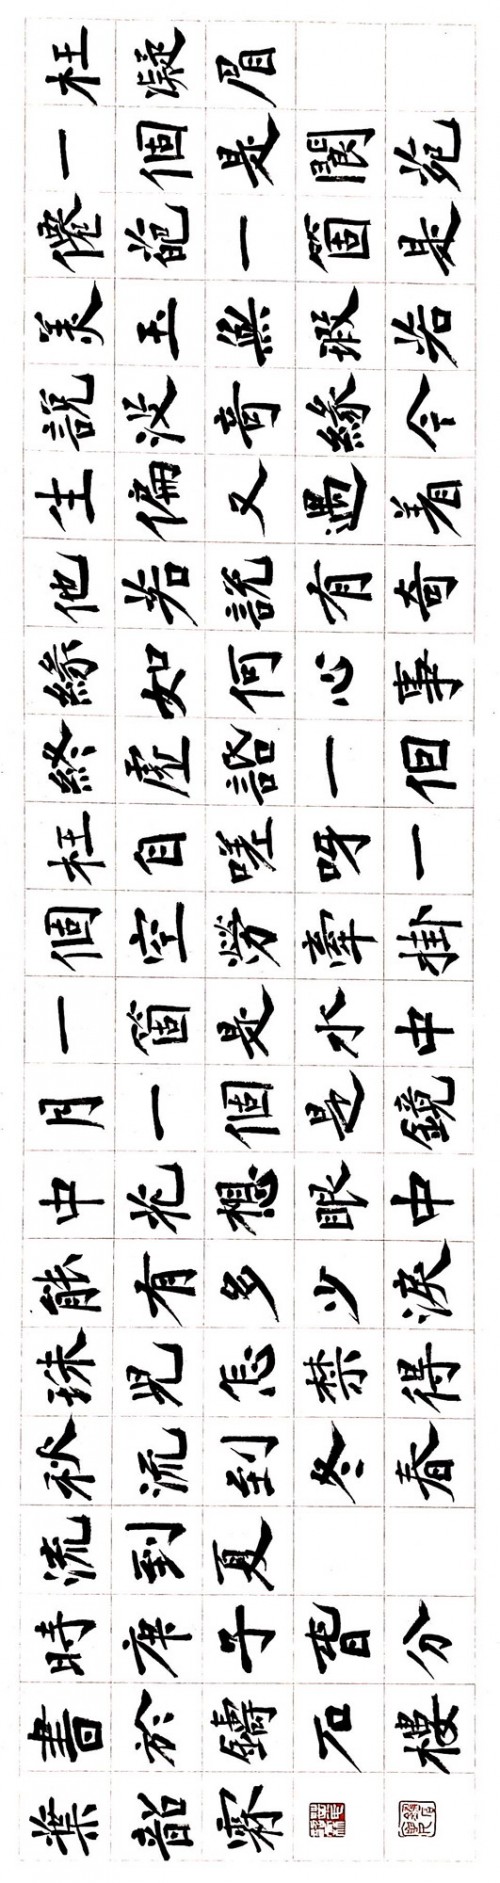 枉凝眉
一個是閬苑
僊葩一箇是
美玉無瑕若
說沒奇緣今
生偏又遇着
他若說有奇
緣如何心事
終虛話一個
枉自嗟呀一
個空勞牽掛
一箇是水中
月一個是鏡
中花想眼中
能有多少淚
珠兒怎禁得
秋流到冬春
流到夏
時庚子旾分
書於鑄石樓
葉韶霖